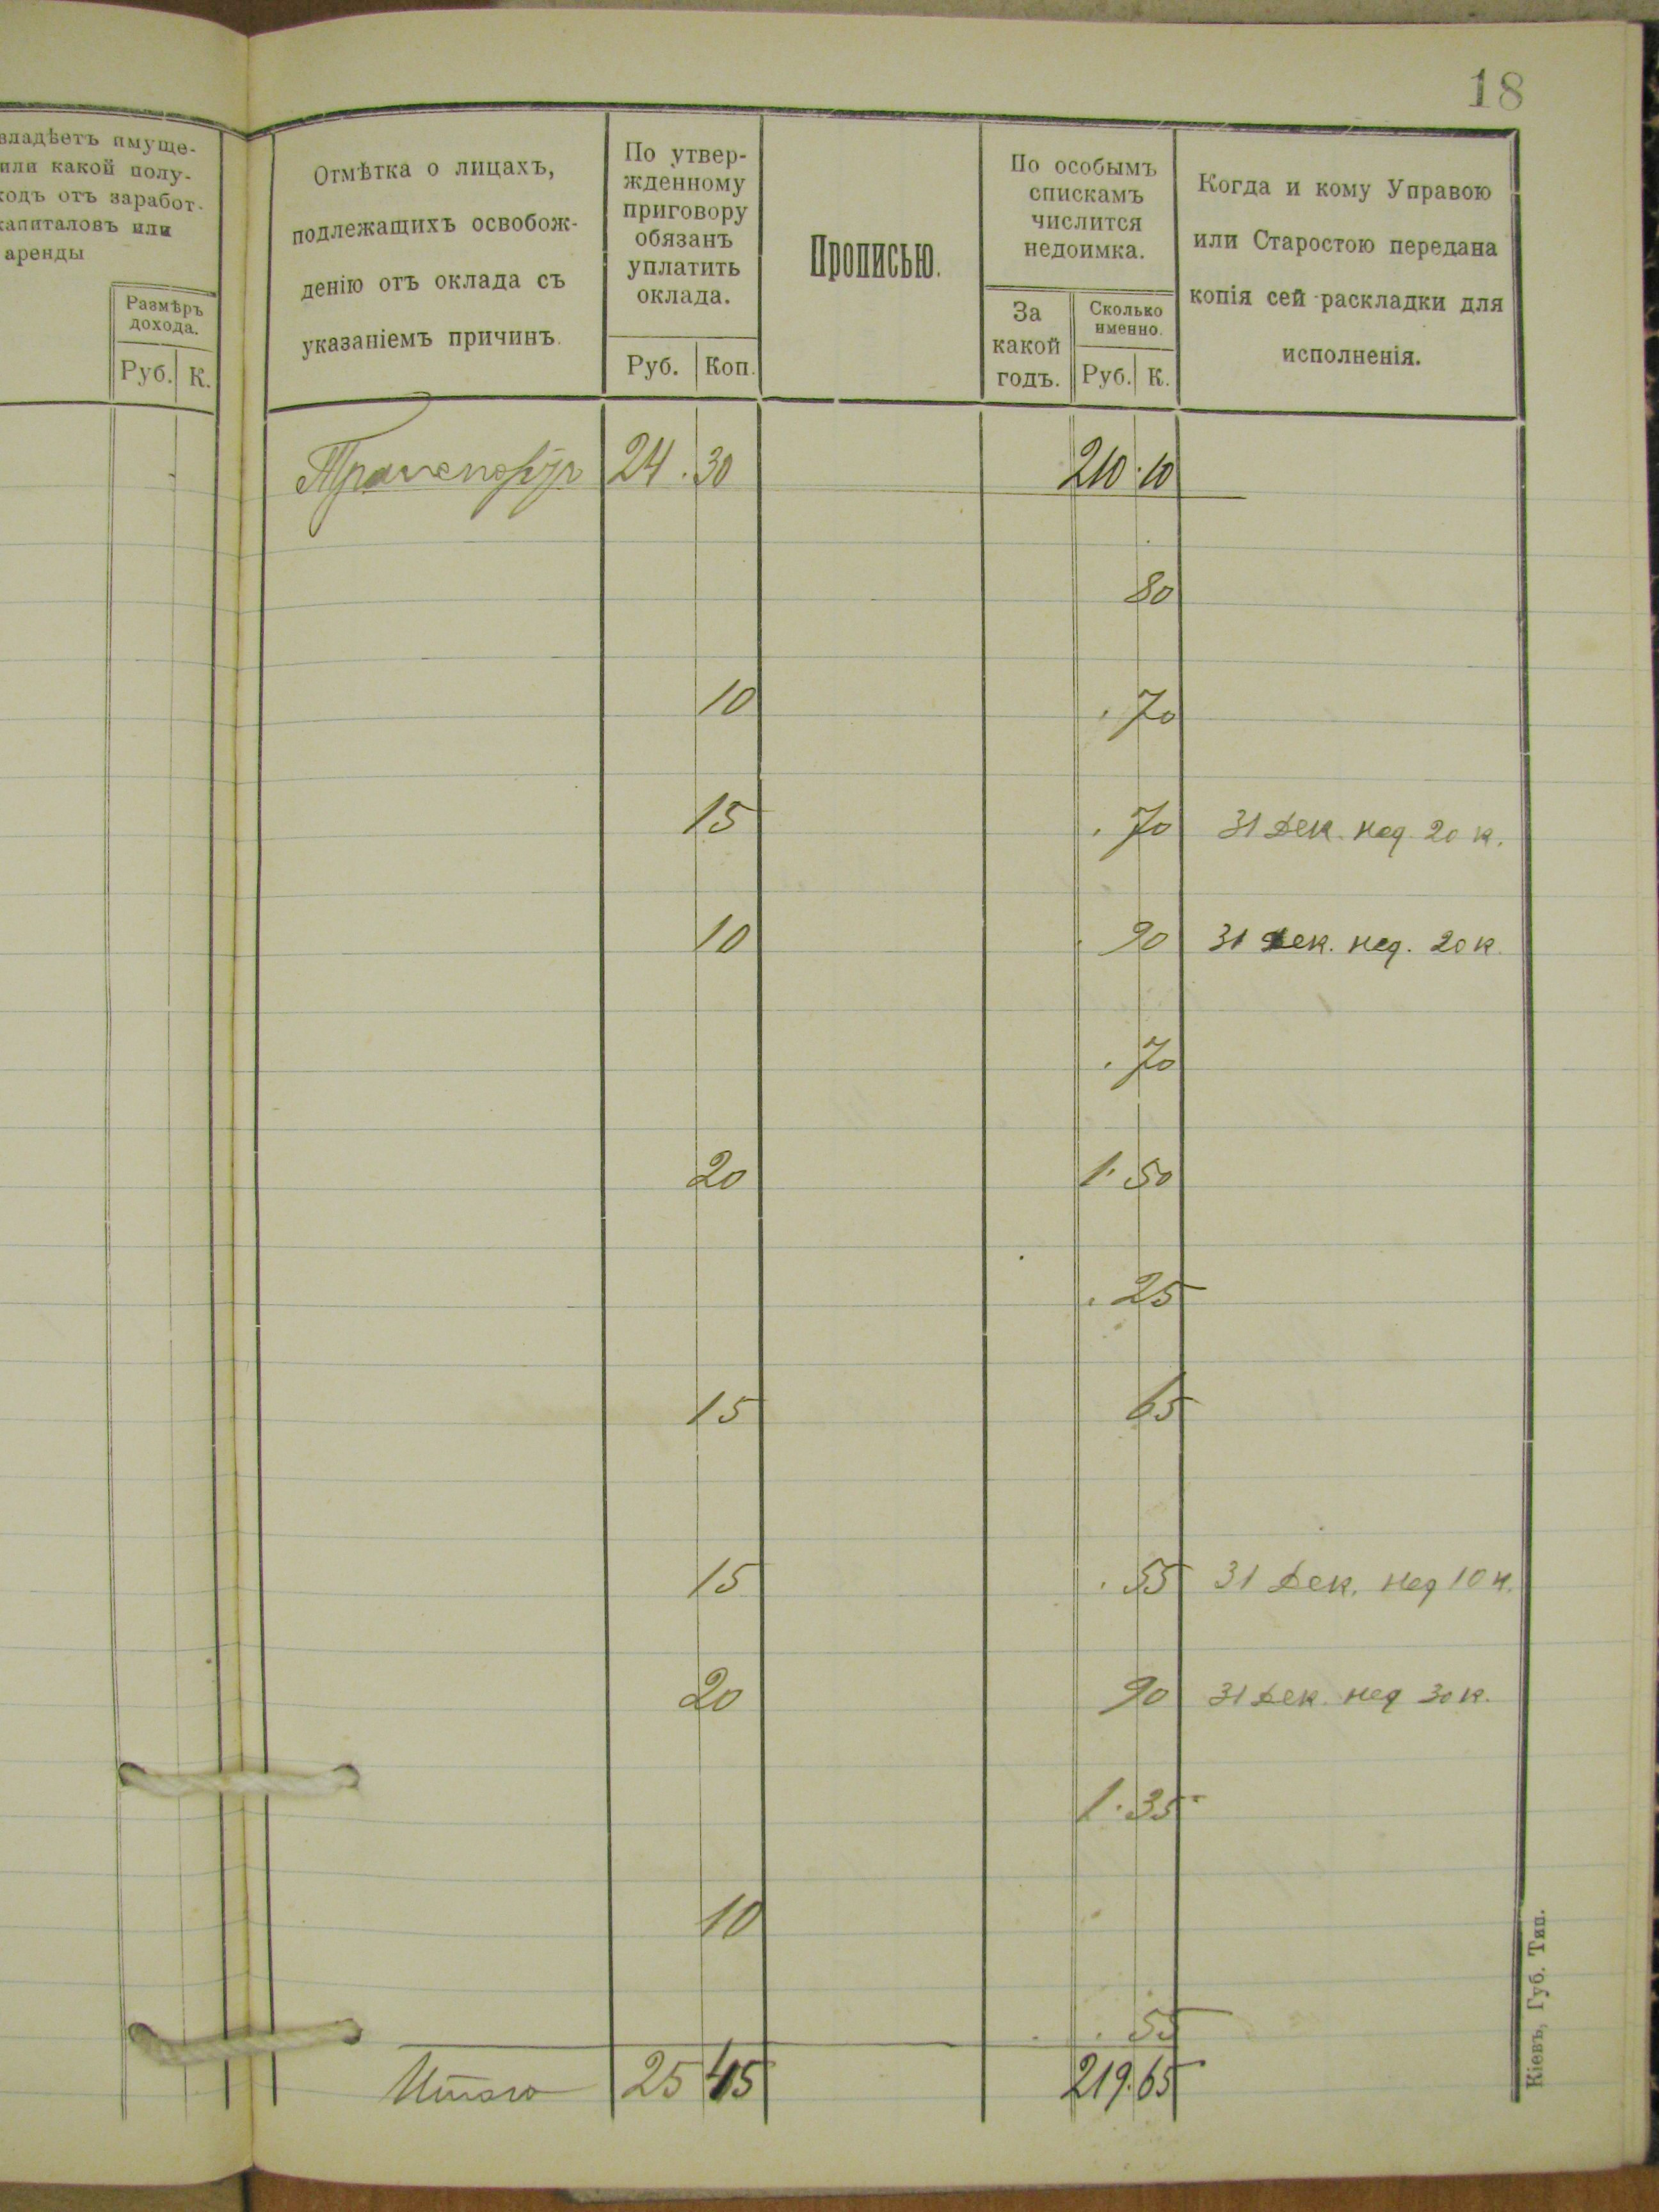 18
владѣетъ имуще-
или какой полу-
ходъ отъ заработ-
капиталовъ или
аренды
Размѣръ
дохода.
Руб. К.
Отмѣтка о лицахъ,
подлежащихъ освобож-
денію отъ оклада съ
указаніемъ причинъ.
По утвер-
жденному
приговору
обязанъ
уплатить
оклада.
Руб. Коп.
Прописью.
По особымъ
спискамъ
числится
недоимка.
За
какой
годъ.
Сколько
именно.
Руб. К.
Когда и кому Управою
или Старостою передана
копія сей раскладки для
исполненія.
Транспортъ 24. 30 210. 10
80
10 . 70
15 . 70 31 Дек. нед. 20 к.
10 . 90 31 Дек. нед. 20 к.
. 70
20 1. 50
. 25
15 65
15 . 55 31 Дек. нед 10 к.
20 90 31 Дек. нед 30 к.
1. 35
10
. 55
Итого 25 45 219. 65
Кіевъ, Губ. Тип.